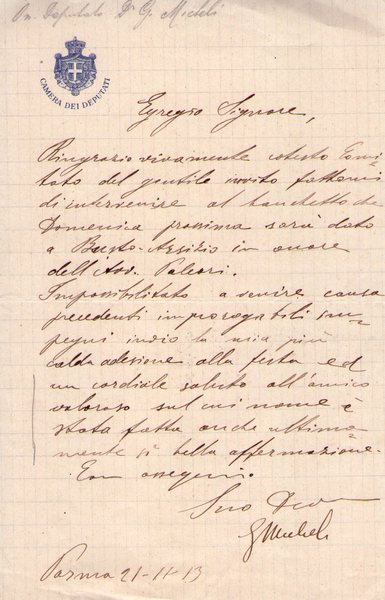 On. Deputato Dr G. Micheli
CAMERA DEI DEPUTATI
Egregio Signore,
Ringrazio vivamente cotesto Comi=
tato del gentile invito fattomi
di intervenire al banchetto che
Domenica prossima sarà dato
a Busto-Arsizio in onore
dell'Avv. Paleari.
Impossibilitato a venire causa
precedenti improrogabili im=
pegni invio la mia più
calda adesione alla festa ed
un cordiale saluto all'amico
valoroso sul cui nome è
stata fatta anche ultima=
mente sì bella affermazione.
Con ossequi.
Suo Dev
GMicheli
Parma 21-11-13